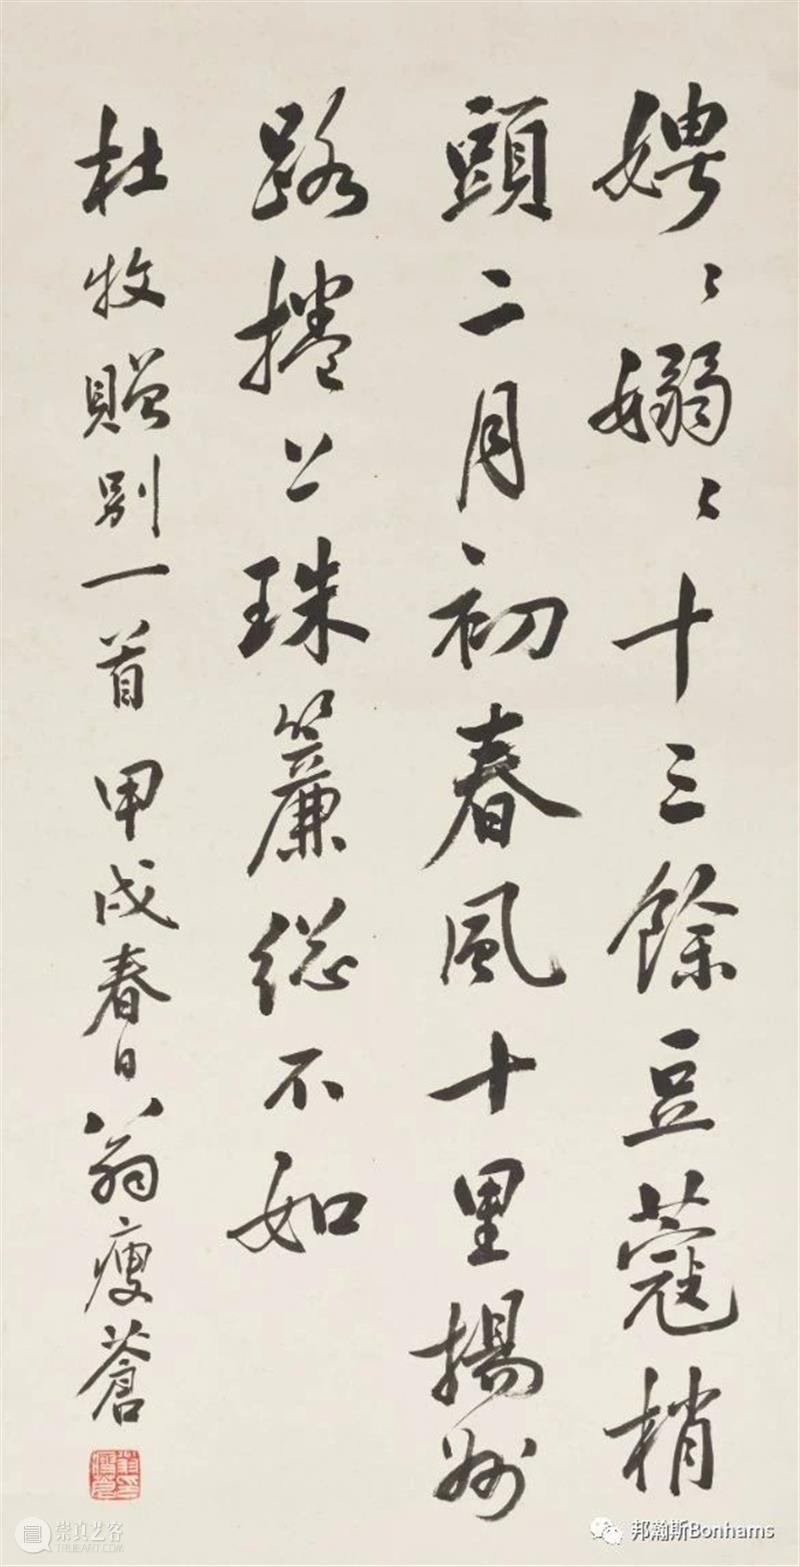 娉〻嫋〻十三餘豆蔻梢
頭二月初春風十里揚州
路捲上珠簾総不如
杜牧贈別一首 甲戌春日 翁瘦蒼
崇真艺客
邦瀚斯Bonhams